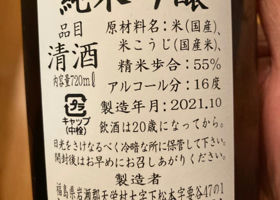 純米吟醸
品目
清酒
内容量720ml
原材料名：米(国産)、
米こうじ(国産米)、
精米歩合：55%
アルコール分：16度
製造年月：2021.10
プラ
キャップ
(中栓)
飲酒は20歳になってから。
日光をさけなるべく冷暗な所に保管して下さい。
開封後はお早めにお召しあがりください。
製造者
福島県岩瀬郡天栄村大字下松本字要谷47の1